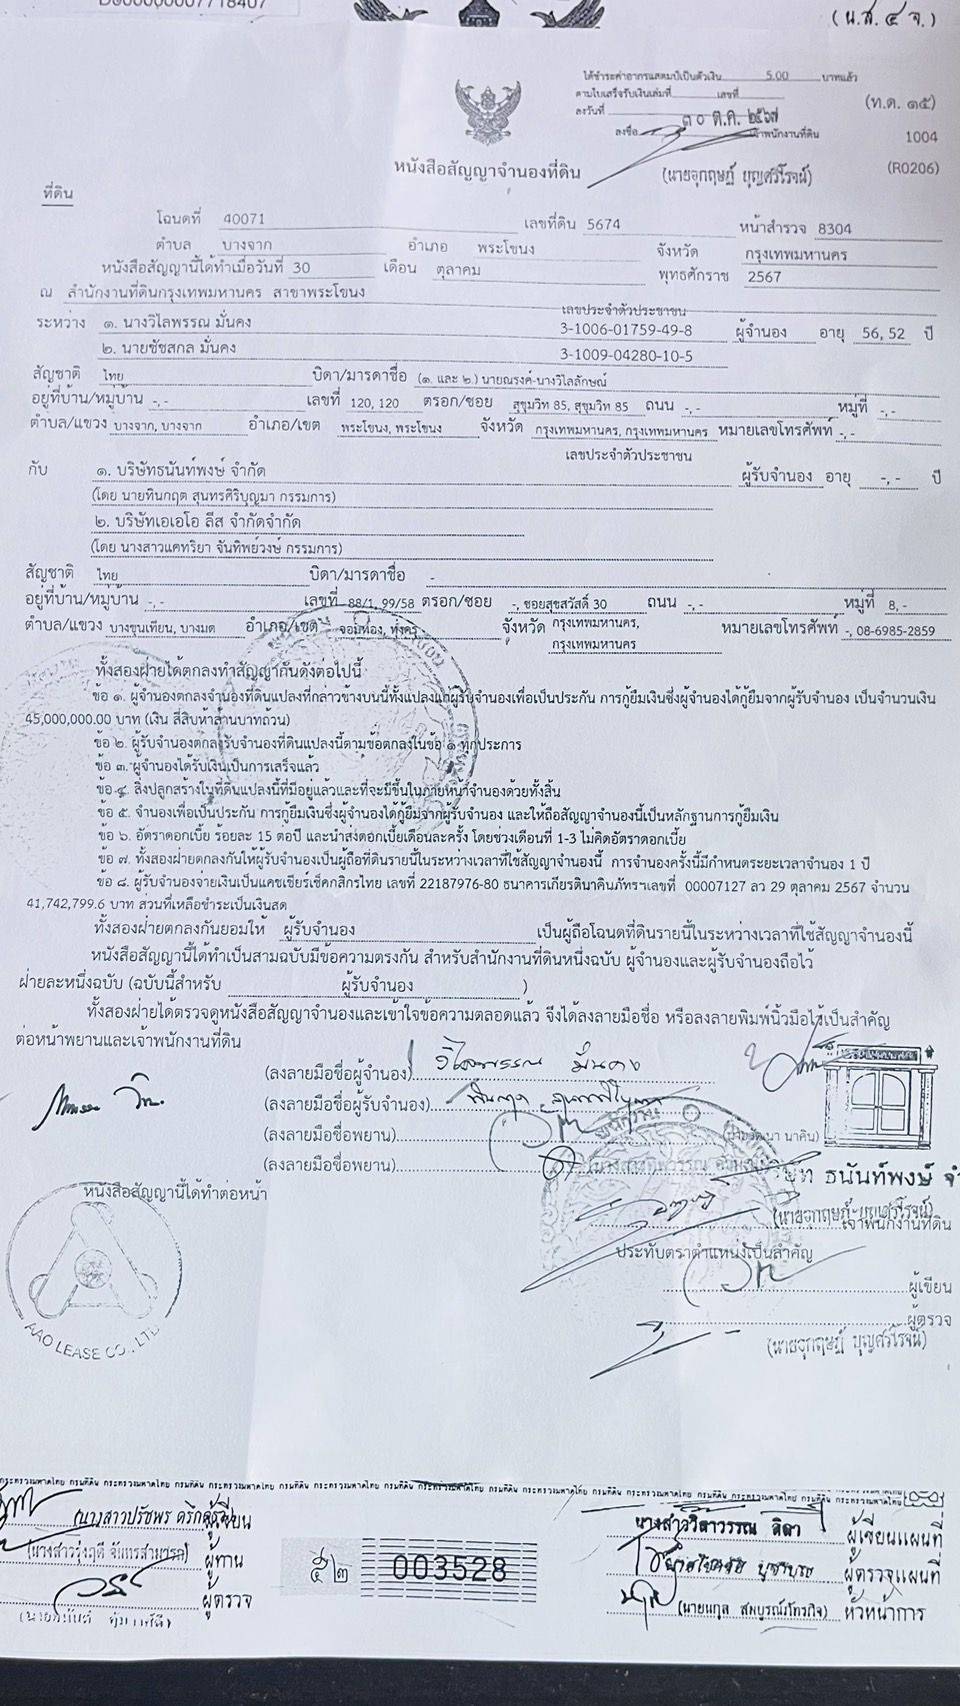 D0000000007718407
(น.ส.๔ จ.)
ได้ชำระค่าอากรแสตมป์เป็นตัวเงิน 5.00 บาทแล้ว
ตามใบเสร็จรับเงินเล่มที่ เลขที่
(ท.ด. ๑๕)
ลงวันที่ ๓๐ ต.ค. ๒๕๖๗
ลงชื่อ เจ้าพนักงานที่ดิน
1004
หนังสือสัญญาจำนองที่ดิน
(นายอุกฤษฎ์ บุญศรีโรจน์)
(R0206)
ที่ดิน
โฉนดที่ 40071 เลขที่ดิน 5674 หน้าสำรวจ 8304
ตำบล บางจาก อำเภอ พระโขนง จังหวัด กรุงเทพมหานคร
หนังสือสัญญานี้ได้ทำเมื่อวันที่ 30 เดือน ตุลาคม พุทธศักราช 2567
ณ สำนักงานที่ดินกรุงเทพมหานคร สาขาพระโขนง
เลขประจำตัวประชาชน
ระหว่าง ๑. นางวิไลพรรณ มั่นคง 3-1006-01759-49-8 ผู้จำนอง อายุ 56, 52 ปี
๒. นายชัชสกล มั่นคง 3-1009-04280-10-5
สัญชาติ ไทย บิดา/มารดาชื่อ (๑. และ ๒.) นายณรงค์-นางวิไลลักษณ์
อยู่ที่บ้าน/หมู่บ้าน -,- เลขที่ 120, 120 ตรอก/ซอย สุขุมวิท 85, สุขุมวิท 85 ถนน -,- หมู่ที่ -,-
ตำบล/แขวง บางจาก, บางจาก อำเภอ/เขต พระโขนง, พระโขนง จังหวัด กรุงเทพมหานคร, กรุงเทพมหานคร หมายเลขโทรศัพท์ -,-
เลขประจำตัวประชาชน
กับ ๑. บริษัทธนันท์พงษ์ จำกัด ผู้รับจำนอง อายุ -,- ปี
(โดย นายทินกฤต สุนทรศิริบุญมา กรรมการ)
๒. บริษัทเอเอโอ ลีส จำกัดจำกัด
(โดย นางสาวแคทริยา จันทิพย์วงษ์ กรรมการ)
สัญชาติ ไทย บิดา/มารดาชื่อ -
อยู่ที่บ้าน/หมู่บ้าน -,- เลขที่ 88/1, 99/58 ตรอก/ซอย -, ซอยสุขสวัสดิ์ 30 ถนน -,- หมู่ที่ 8,-
ตำบล/แขวง บางขุนเทียน, บางมด อำเภอ/เขต จอมทอง, ทุ่งครุ จังหวัด กรุงเทพมหานคร, หมายเลขโทรศัพท์ -, 08-6985-2859
กรุงเทพมหานคร
ทั้งสองฝ่ายได้ตกลงทำสัญญากันดังต่อไปนี้
ข้อ ๑. ผู้จำนองตกลงจำนองที่ดินแปลงที่กล่าวข้างบนนี้ทั้งแปลงแก่ผู้รับจำนองเพื่อเป็นประกัน การกู้ยืมเงินซึ่งผู้จำนองได้กู้ยืมจากผู้รับจำนอง เป็นจำนวนเงิน
45,000,000.00 บาท (เงิน สี่สิบห้าล้านบาทถ้วน)
ข้อ ๒. ผู้รับจำนองตกลงรับจำนองที่ดินแปลงนี้ตามข้อตกลงในข้อ ๑ ทุกประการ
ข้อ ๓. ผู้จำนองได้รับเงินเป็นการเสร็จแล้ว
ข้อ ๔. สิ่งปลูกสร้างในที่ดินแปลงนี้ที่มีอยู่แล้วและที่จะมีขึ้นในภายหน้าจำนองด้วยทั้งสิ้น
ข้อ ๕. จำนองเพื่อเป็นประกัน การกู้ยืมเงินซึ่งผู้จำนองได้กู้ยืมจากผู้รับจำนอง และให้ถือสัญญาจำนองนี้เป็นหลักฐานการกู้ยืมเงิน
ข้อ ๖. อัตราดอกเบี้ย ร้อยละ 15 ต่อปี และนำส่งดอกเบี้ยเดือนละครั้ง โดยช่วงเดือนที่ 1-3 ไม่คิดอัตราดอกเบี้ย
ข้อ ๗. ทั้งสองฝ่ายตกลงกันให้ผู้รับจำนองเป็นผู้ถือที่ดินรายนี้ในระหว่างเวลาที่ใช้สัญญาจำนองนี้ การจำนองครั้งนี้มีกำหนดระยะเวลาจำนอง 1 ปี
ข้อ ๘. ผู้รับจำนองจ่ายเงินเป็นแคชเชียร์เช็คกสิกรไทย เลขที่ 22187976-80 ธนาคารเกียรตินาคินภัทรฯเลขที่ 00007127 ลว 29 ตุลาคม 2567 จำนวน
41,742,799.6 บาท ส่วนที่เหลือชำระเป็นเงินสด
ทั้งสองฝ่ายตกลงกันยอมให้ ผู้รับจำนอง เป็นผู้ถือโฉนดที่ดินรายนี้ในระหว่างเวลาที่ใช้สัญญาจำนองนี้
หนังสือสัญญานี้ได้ทำเป็นสามฉบับมีข้อความตรงกัน สำหรับสำนักงานที่ดินหนึ่งฉบับ ผู้จำนองและผู้รับจำนองถือไว้
ฝ่ายละหนึ่งฉบับ (ฉบับนี้สำหรับ ผู้รับจำนอง )
ทั้งสองฝ่ายได้ตรวจดูหนังสือสัญญาจำนองและเข้าใจข้อความตลอดแล้ว จึงได้ลงลายมือชื่อ หรือลงลายพิมพ์นิ้วมือไว้เป็นสำคัญ
ต่อหน้าพยานและเจ้าพนักงานที่ดิน
(ลงลายมือชื่อผู้จำนอง) วิไลพรรณ มั่นคง
(ลงลายมือชื่อผู้รับจำนอง)
(ลงลายมือชื่อพยาน)
(ลงลายมือชื่อพยาน)
ธนันท์พงษ์ จำ
หนังสือสัญญานี้ได้ทำต่อหน้า
(นายอุกฤษฎ์ บุญศรีโรจน์)
เจ้าพนักงานที่ดิน
ประทับตราตำแหน่งเป็นสำคัญ
ผู้เขียน
ผู้ตรวจ
(นายอุกฤษฎ์ บุญศรีโรจน์)
AAO LEASE CO., LTD
กระทรวงมหาดไทย กรมที่ดิน กระทรวงมหาดไทย กรมที่ดิน กระทรวงมหาดไทย กรมที่ดิน กระทรวงมหาดไทย กรมที่ดิน กระทรวงมหาดไทย กรมที่ดิน
ผู้เขียน
ผู้ทาน
ผู้ตรวจ
๕๒
003528
ผู้เขียนแผนที่
ผู้ตรวจแผนที่
หัวหน้าการ